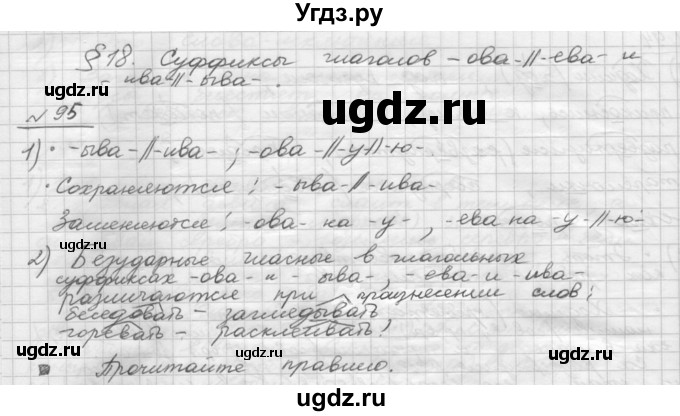 Угдз.ру
§ 18. Суффиксы глаголов -ова-//-ева- и
- ива-//-ыва- .
№ 95
1) • -ыва-//-ива- ; -ова-//-у-//-ю-.
• Сохраняются: -ыва-//-ива-
Заменяются: -ова- на -у- , -ева на -у-//-ю-
2) Безударные гласные в глагольных
суффиксах -ова- и -ыва- , -ева- и -ива-
различаются при произнесении слов:
беседовать - заглядывать
горевать - расклеивать!
Прочитайте правило.
ugdz.ru
ugdz.ru
ugdz.ru
ugdz.ru
ugdz.ru
ugdz.ru
ugdz.ru
ugdz.ru